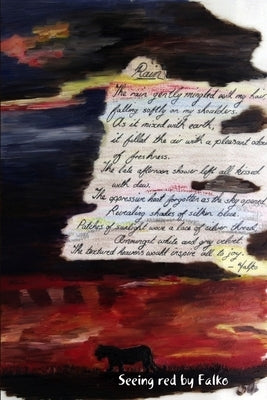 Rain
The rain gently mingled with my hair,
falling softly on my shoulders.
As it mixed with earth,
it filled the air with a pleasant odour
of freshness.
The late afternoon shower left all kissed
with dew.
The oppressive heat forgotten as the sky opened
Revealing shades of silken blue.
Patches of sunlight wove a lace of silver thread,
Amongst white and grey velvet.
The textured heavens would inspire all to joy.
- Falko
Seeing red by Falko